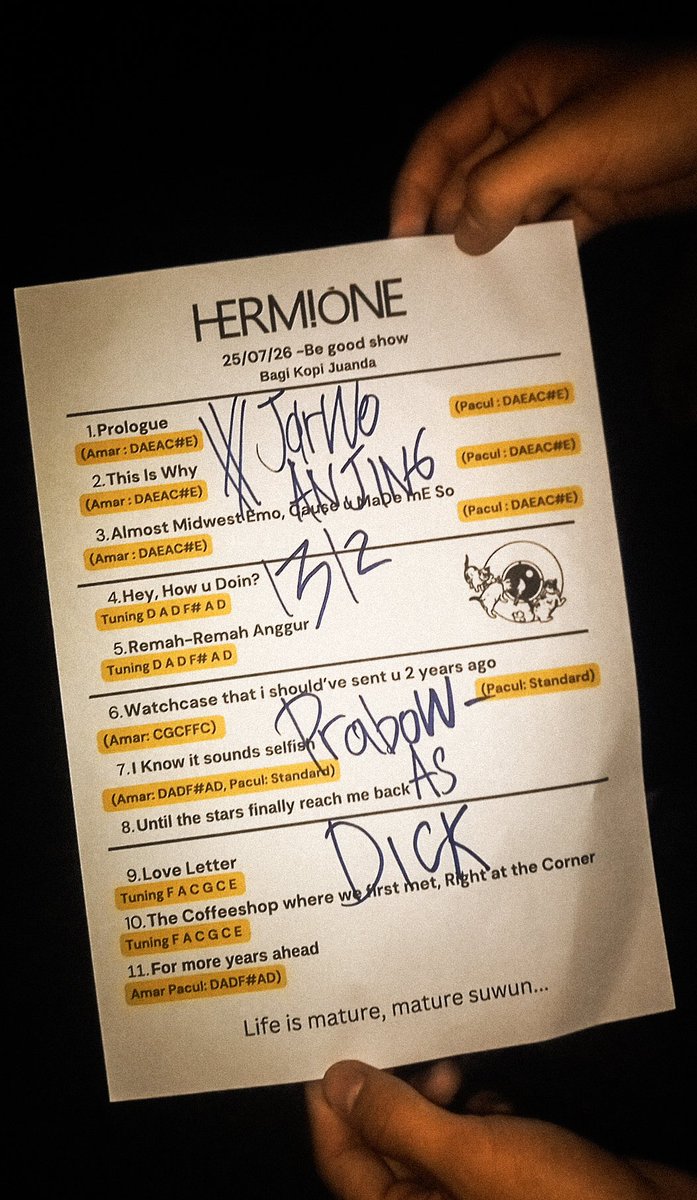 HERM!ONE
25/07/26 -Be good show
Bagi Kopi Juanda
1.Prologue
(Amar : DAEAC#E)
(Pacul : DAEAC#E)
JarWo
2.This Is Why
(Amar : DAEAC#E)
(Pacul : DAEAC#E)
ANJING
3.Almost Midwest Emo, Cause u MaDe mE So
(Amar : DAEAC#E)
(Pacul : DAEAC#E)
4.Hey, How u Doin?
Tuning D A D F# A D
13/2
5.Remah-Remah Anggur
Tuning D A D F# A D
13
6.Watchcase that i should've sent u 2 years ago
(Amar: CGCFFC)
(Pacul: Standard)
PraboW-
7.I Know it sounds selfish
(Amar: DADF#AD, Pacul: Standard)
AS
8.Until the stars finally reach me back
DICK
9.Love Letter
Tuning F A C G C E
10.The Coffeeshop where we first met, Right at the Corner
Tuning F A C G C E
11.For more years ahead
Amar Pacul: DADF#AD)
Life is mature, mature suwun...